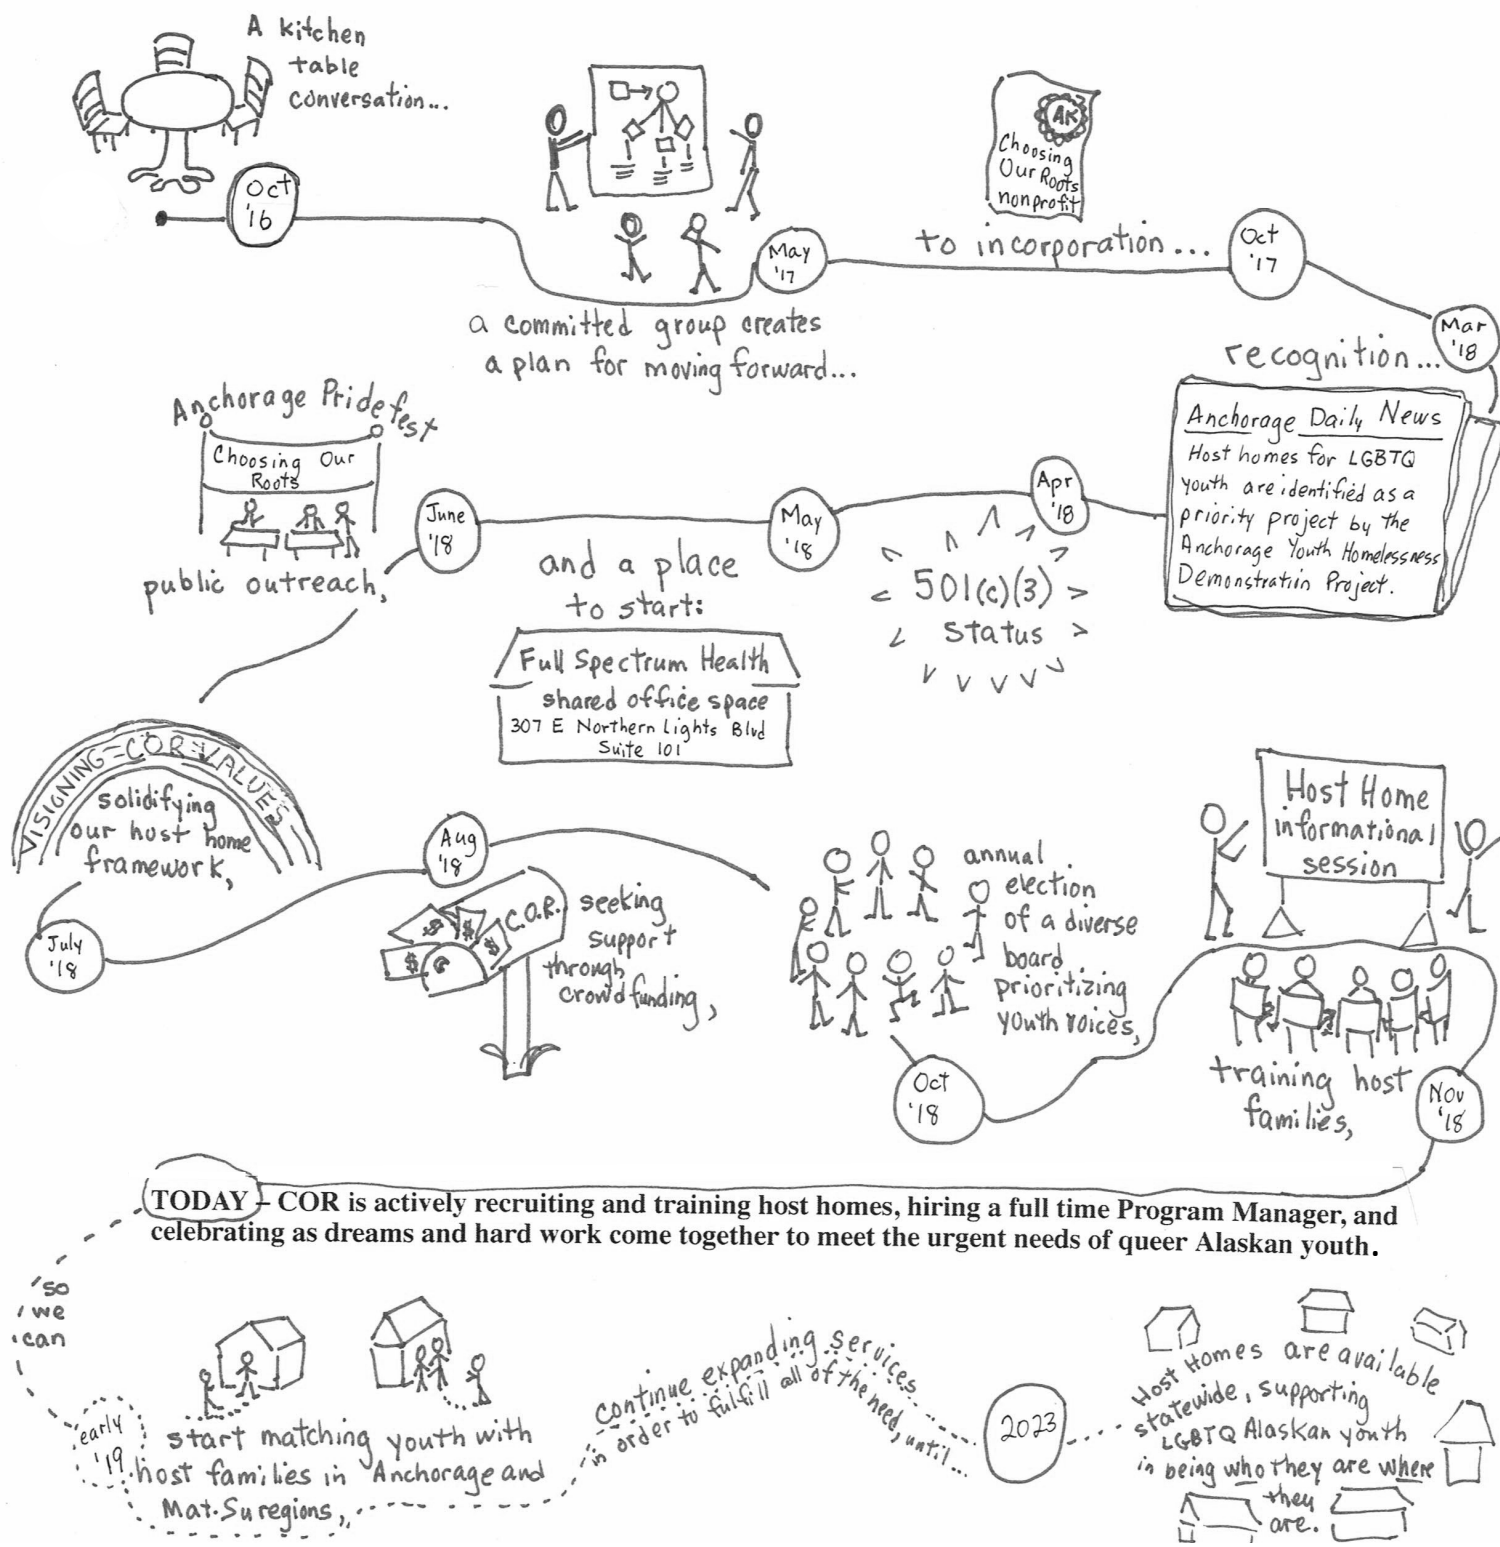 A kitchen
table
conversation...
Oct
'16
a committed group creates
a plan for moving forward...
May
'17
AK
Choosing
Our Roots
nonprofit
to incorporation...
Oct
'17
Mar
'18
recognition...
Anchorage Daily News
Host homes for LGBTQ
youth are identified as a
priority project by the
Anchorage Youth Homelessness
Demonstratin Project.
Apr
'18
501(c)(3)
Status
May
'18
and a place
to start:
Full Spectrum Health
shared office space
307 E Northern Lights Blvd
Suite 101
June
'18
Anchorage Pridefest
Choosing Our
Roots
public outreach,
VISIGNING-COR-VALUES
solidifying
our host home
framework,
July
'18
Aug
'18
C.O.R.
$
$
$
$
seeking
support
through
crowdfunding,
annual
election
of a diverse
board
prioritizing
youth voices,
Oct
'18
Host Home
informational
session
training host
families,
Nov
'18
TODAY – COR is actively recruiting and training host homes, hiring a full time Program Manager, and
celebrating as dreams and hard work come together to meet the urgent needs of queer Alaskan youth.
so
we
can
early
'19
start matching youth with
host families in Anchorage and
Mat-Su regions,
continue expanding services
in order to fulfill all of the need, until...
2023
Host Homes are available
statewide, supporting
LGBTQ Alaskan youth
in being who they are where
they
are.